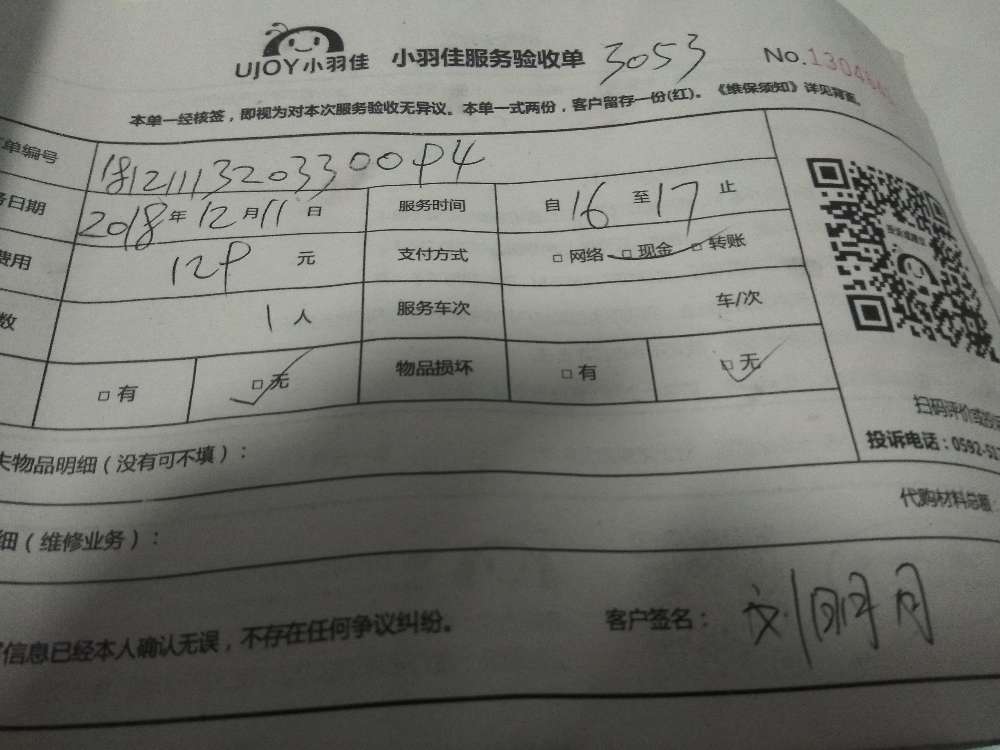 UJOY小羽佳 小羽佳服务验收单 3053 No.1304
本单一经核签，即视为对本次服务验收无异议。本单一式两份，客户留存一份(红)。《维保须知》详见背面。
单编号 18121113203300P4
务日期 2018年12月11日 服务时间 自16至17止
费用 129元 支付方式 □网络 □现金 □转账
数 1人 服务车次 车/次
□有 □无 物品损坏 □有 □无
扫码评价或投
失物品明细（没有可不填）：
投诉电话：0592-51
代购材料总额：
细（维修业务）：
信息已经本人确认无误，不存在任何争议纠纷。 客户签名：刘明月